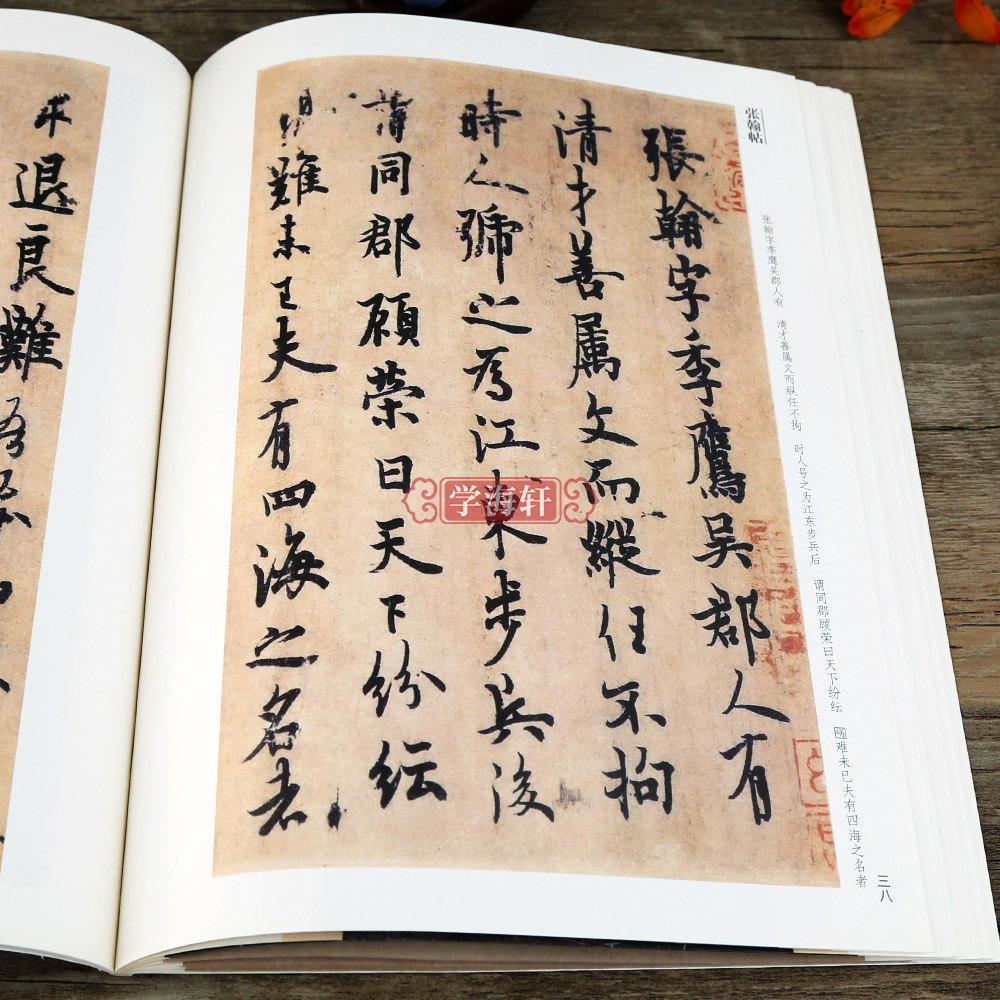 张翰帖
張翰字季鷹吴郡人有
清才善属文而縱任不拘
時人號之為江東步兵後
謂同郡顧榮曰天下紛紜
難未已夫有四海之名者
张翰字季鹰吴郡人有 清才善属文而纵任不拘 时人号之为江东步兵后 谓同郡顾荣曰天下纷纭 難未已夫有四海之名者
三八
求退良難吾
学海轩